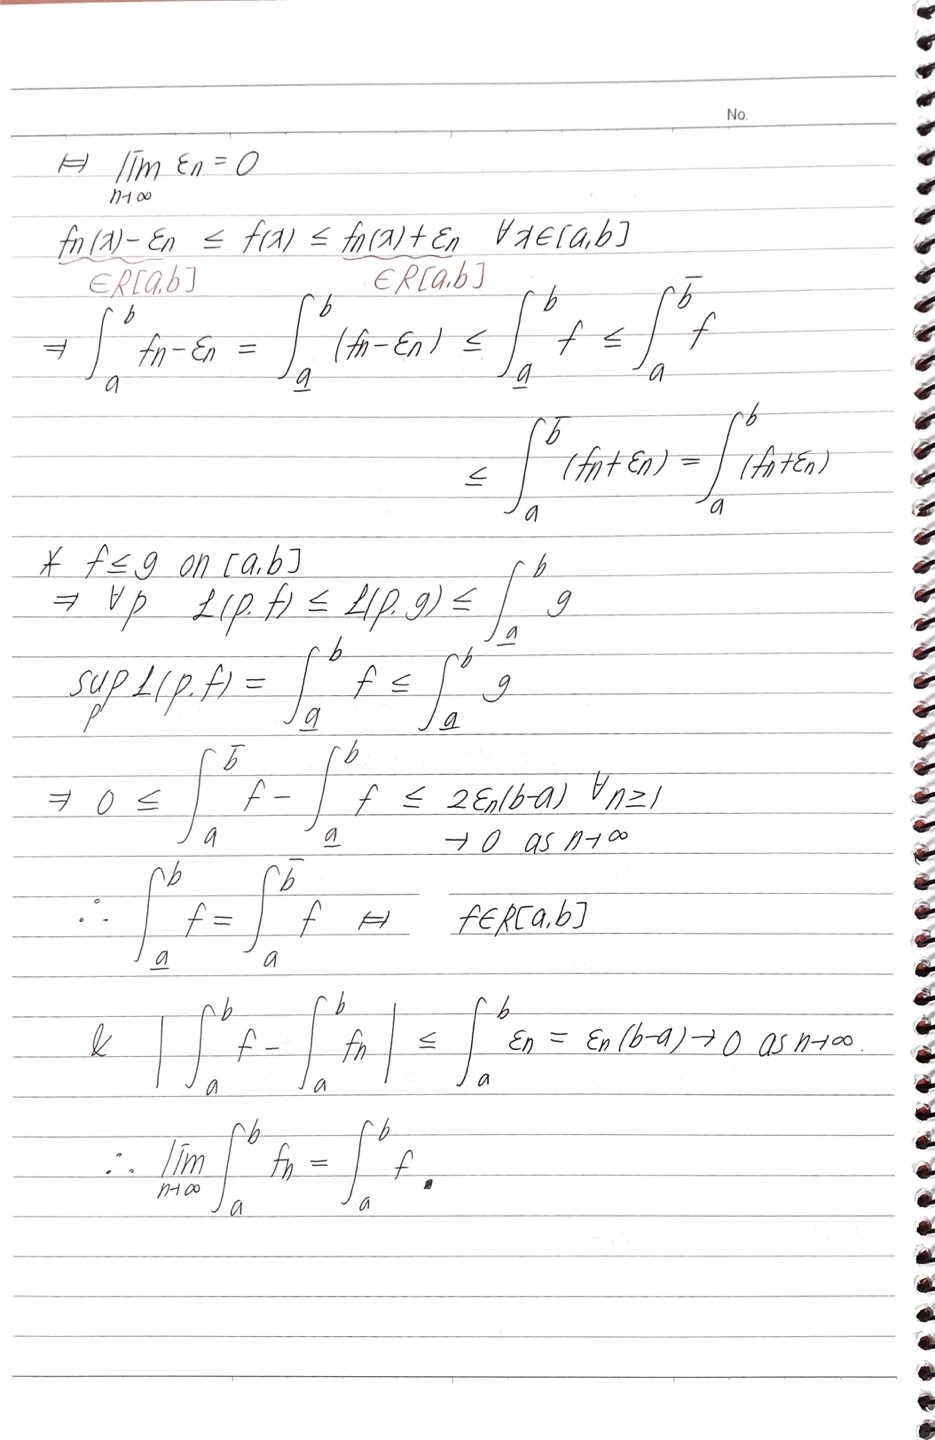 No.
⇔ lim_{n→∞} εn = 0
fn(x) - εn ≤ f(x) ≤ fn(x) + εn ∀x∈[a,b]
∈R[a,b] ∈R[a,b]
⇒ ∫_a^b fn - εn = ∫_{a̲}^b (fn - εn) ≤ ∫_{a̲}^b f ≤ ∫_a^{b̄} f
≤ ∫_a^{b̄} (fn + εn) = ∫_a^b (fn + εn)
* f ≤ g on [a,b]
⇒ ∀p L(p.f) ≤ L(p.g) ≤ ∫_{a̲}^b g
sup_p L(p.f) = ∫_{a̲}^b f ≤ ∫_{a̲}^b g
⇒ 0 ≤ ∫_a^{b̄} f - ∫_{a̲}^b f ≤ 2εn(b-a) ∀n≥1
→ 0 as n→∞
∴ ∫_{a̲}^b f = ∫_a^{b̄} f ⇔ f∈R[a,b]
& |∫_a^b f - ∫_a^b fn| ≤ ∫_a^b εn = εn(b-a) → 0 as n→∞.
∴ lim_{n→∞} ∫_a^b fn = ∫_a^b f.